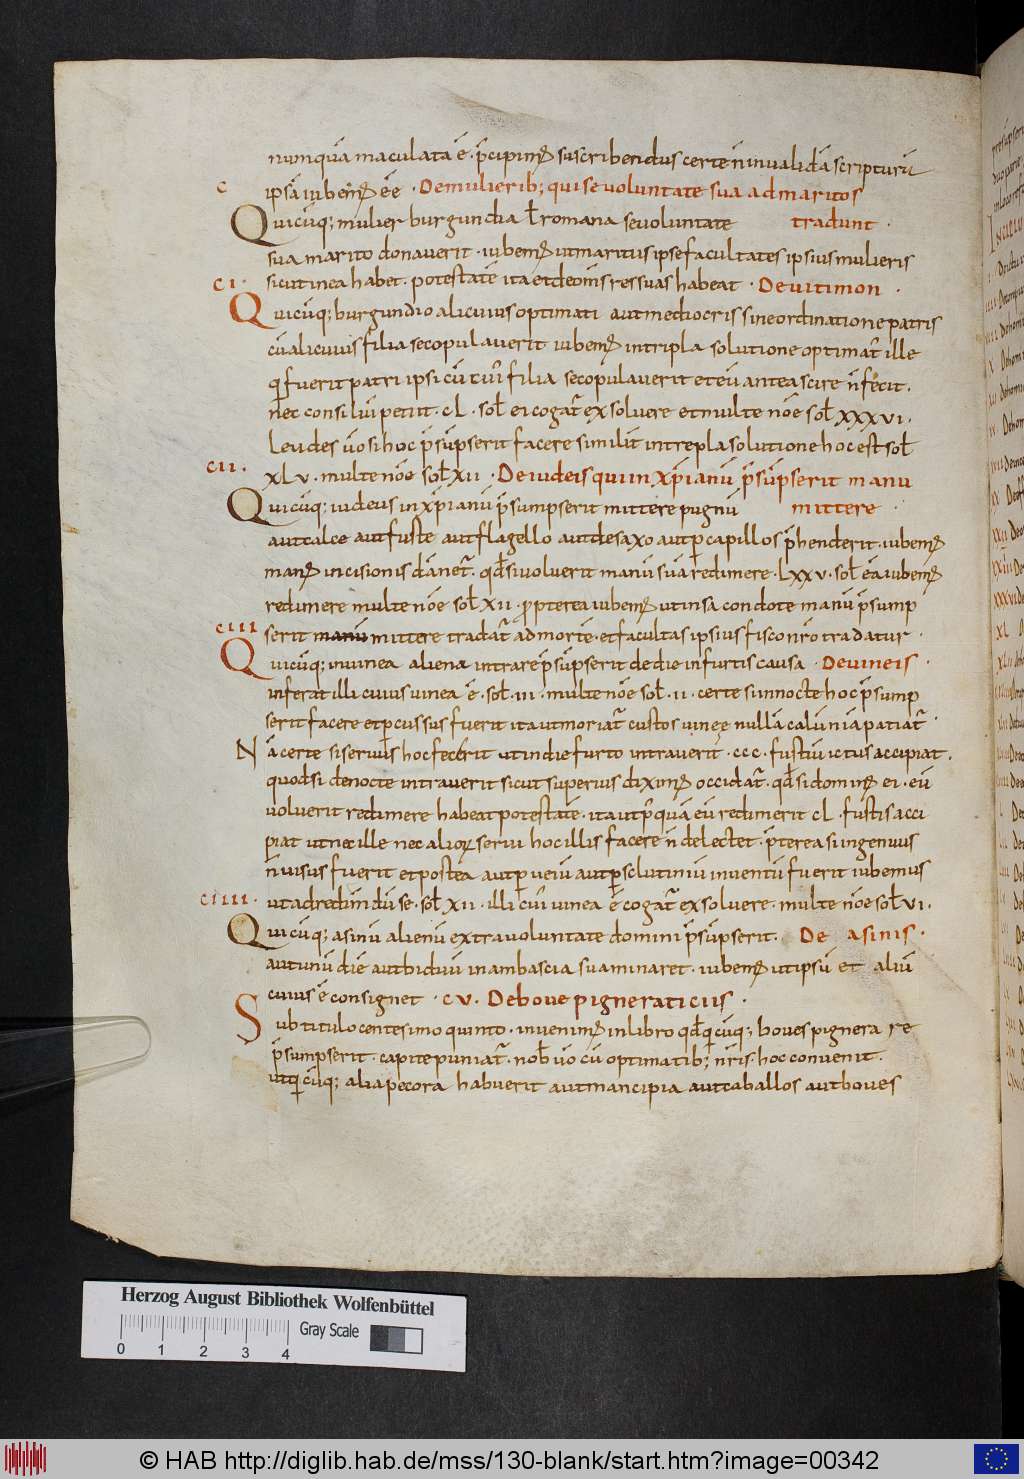 nunquā maculata ē · p̄cipim; suscribendus certe n̄ invalidā scripturū
c ipsā iubem; ēē · De mulierib; qui se voluntate sua ad maritos
Quicūq; mulier burgundia ł romana se voluntate tradunt ·
sua marito donaverit · iubem; ut maritus ipse facultates ipsius mulieris
sicut in ea habet · potestatē ita et de om̄s res suas habeat · De vitimon ·
ci ·
Quicūq; burgundio alicuius optimati aut mediocris sine ordinatione patris
cū alicuius filia se copulaverit iubem; in tripla solutione optimat᷑ ille
q̄ fuerit patri ipsi cū cui᷑ filia se copulaverit et eū antea scire n̄ fecit ·
nec consiliū petiit · cl · sol̄ ei cogat᷑ exsolvere et multe nōe sol̄ xxxvi ·
Leudes ūo si hoc p̄sūpserit facere similit̄ in trepla solutione hoc est sol̄
cii · xlv · multe nōe sol̄ xii · De iudeis qui in xp̄ianū p̄sūpserit manu
Quicūq; iudeus in xp̄ianū p̄sumpserit mittere pugnū mittere ·
aut calce aut fuste aut flagello aut de saxo aut p capillos p̄henderit · iubem;
man; incisionis dānet᷑ · qd̄ si voluerit manū suā redimere · lxxv · sol̄ eā iubem;
redimere multe nōe sol̄ xii · propterea iubem; ut in sacondote manū p̄sump
ciii serit manū mittere tradat᷑ ad mortē · et facultas ipsius fisco nr̄o tradatur ·
Quicūq; in vinea aliena intrare p̄sūpserit de die in furtis causa · De vineis ·
inferat illi cuius vinea ē · sol̄ iii · multe nōe sol̄ ii · certe si in nocte hoc p̄sump
serit facere et pcussus fuerit ita ut moriat᷑ custos vineę nullā calūniā patiat᷑ ·
Nā certe si servus hoc fecerit ut in die furto intraverit · ccc · fustiū ictus accipiat ·
quodsi de nocte intraverit sicut superius dixim; occidat᷑ · qd̄ si domin; ei · eū
voluerit redimere habeat potestatē · ita ut p᷑quā eū redimerit cl · fustis acci
piat ut nec ille nec alior servi hoc illis facere n̄ delectet · p̄terea si ingenuus
n̄ visus fuerit et postea aut p veiū aut p sclutiniū inventū fuerit iubemus
ciiii · ut ad redimēdū se · sol̄ xii · illi cui᷑ vinea ē cogat᷑ exsolvere · multe nōe sol̄ vi ·
Quicūq; asinū alienū extra voluntate domini p̄sūpserit · De asinis ·
aut unū diē aut biduū in ambascia sua minaret · iubem; ut ipsū et aliū
cuius ē consignet · cv. De bove pigneraticiis ·
Sub titulo centesimo quinto · invenim; in libro qd̄ q̄cūq; boves pignera re
p̄sumpserit · capite puniat᷑ · nob̄ ūo cū optimatib; nr̄is · hoc convenit ·
ut q̄cūq; alia pecora habuerit aut mancipia aut caballos aut boves
Herzog August Bibliothek Wolfenbüttel
Gray Scale
0 1 2 3 4
© HAB http://diglib.hab.de/mss/130-blank/start.htm?image=00342